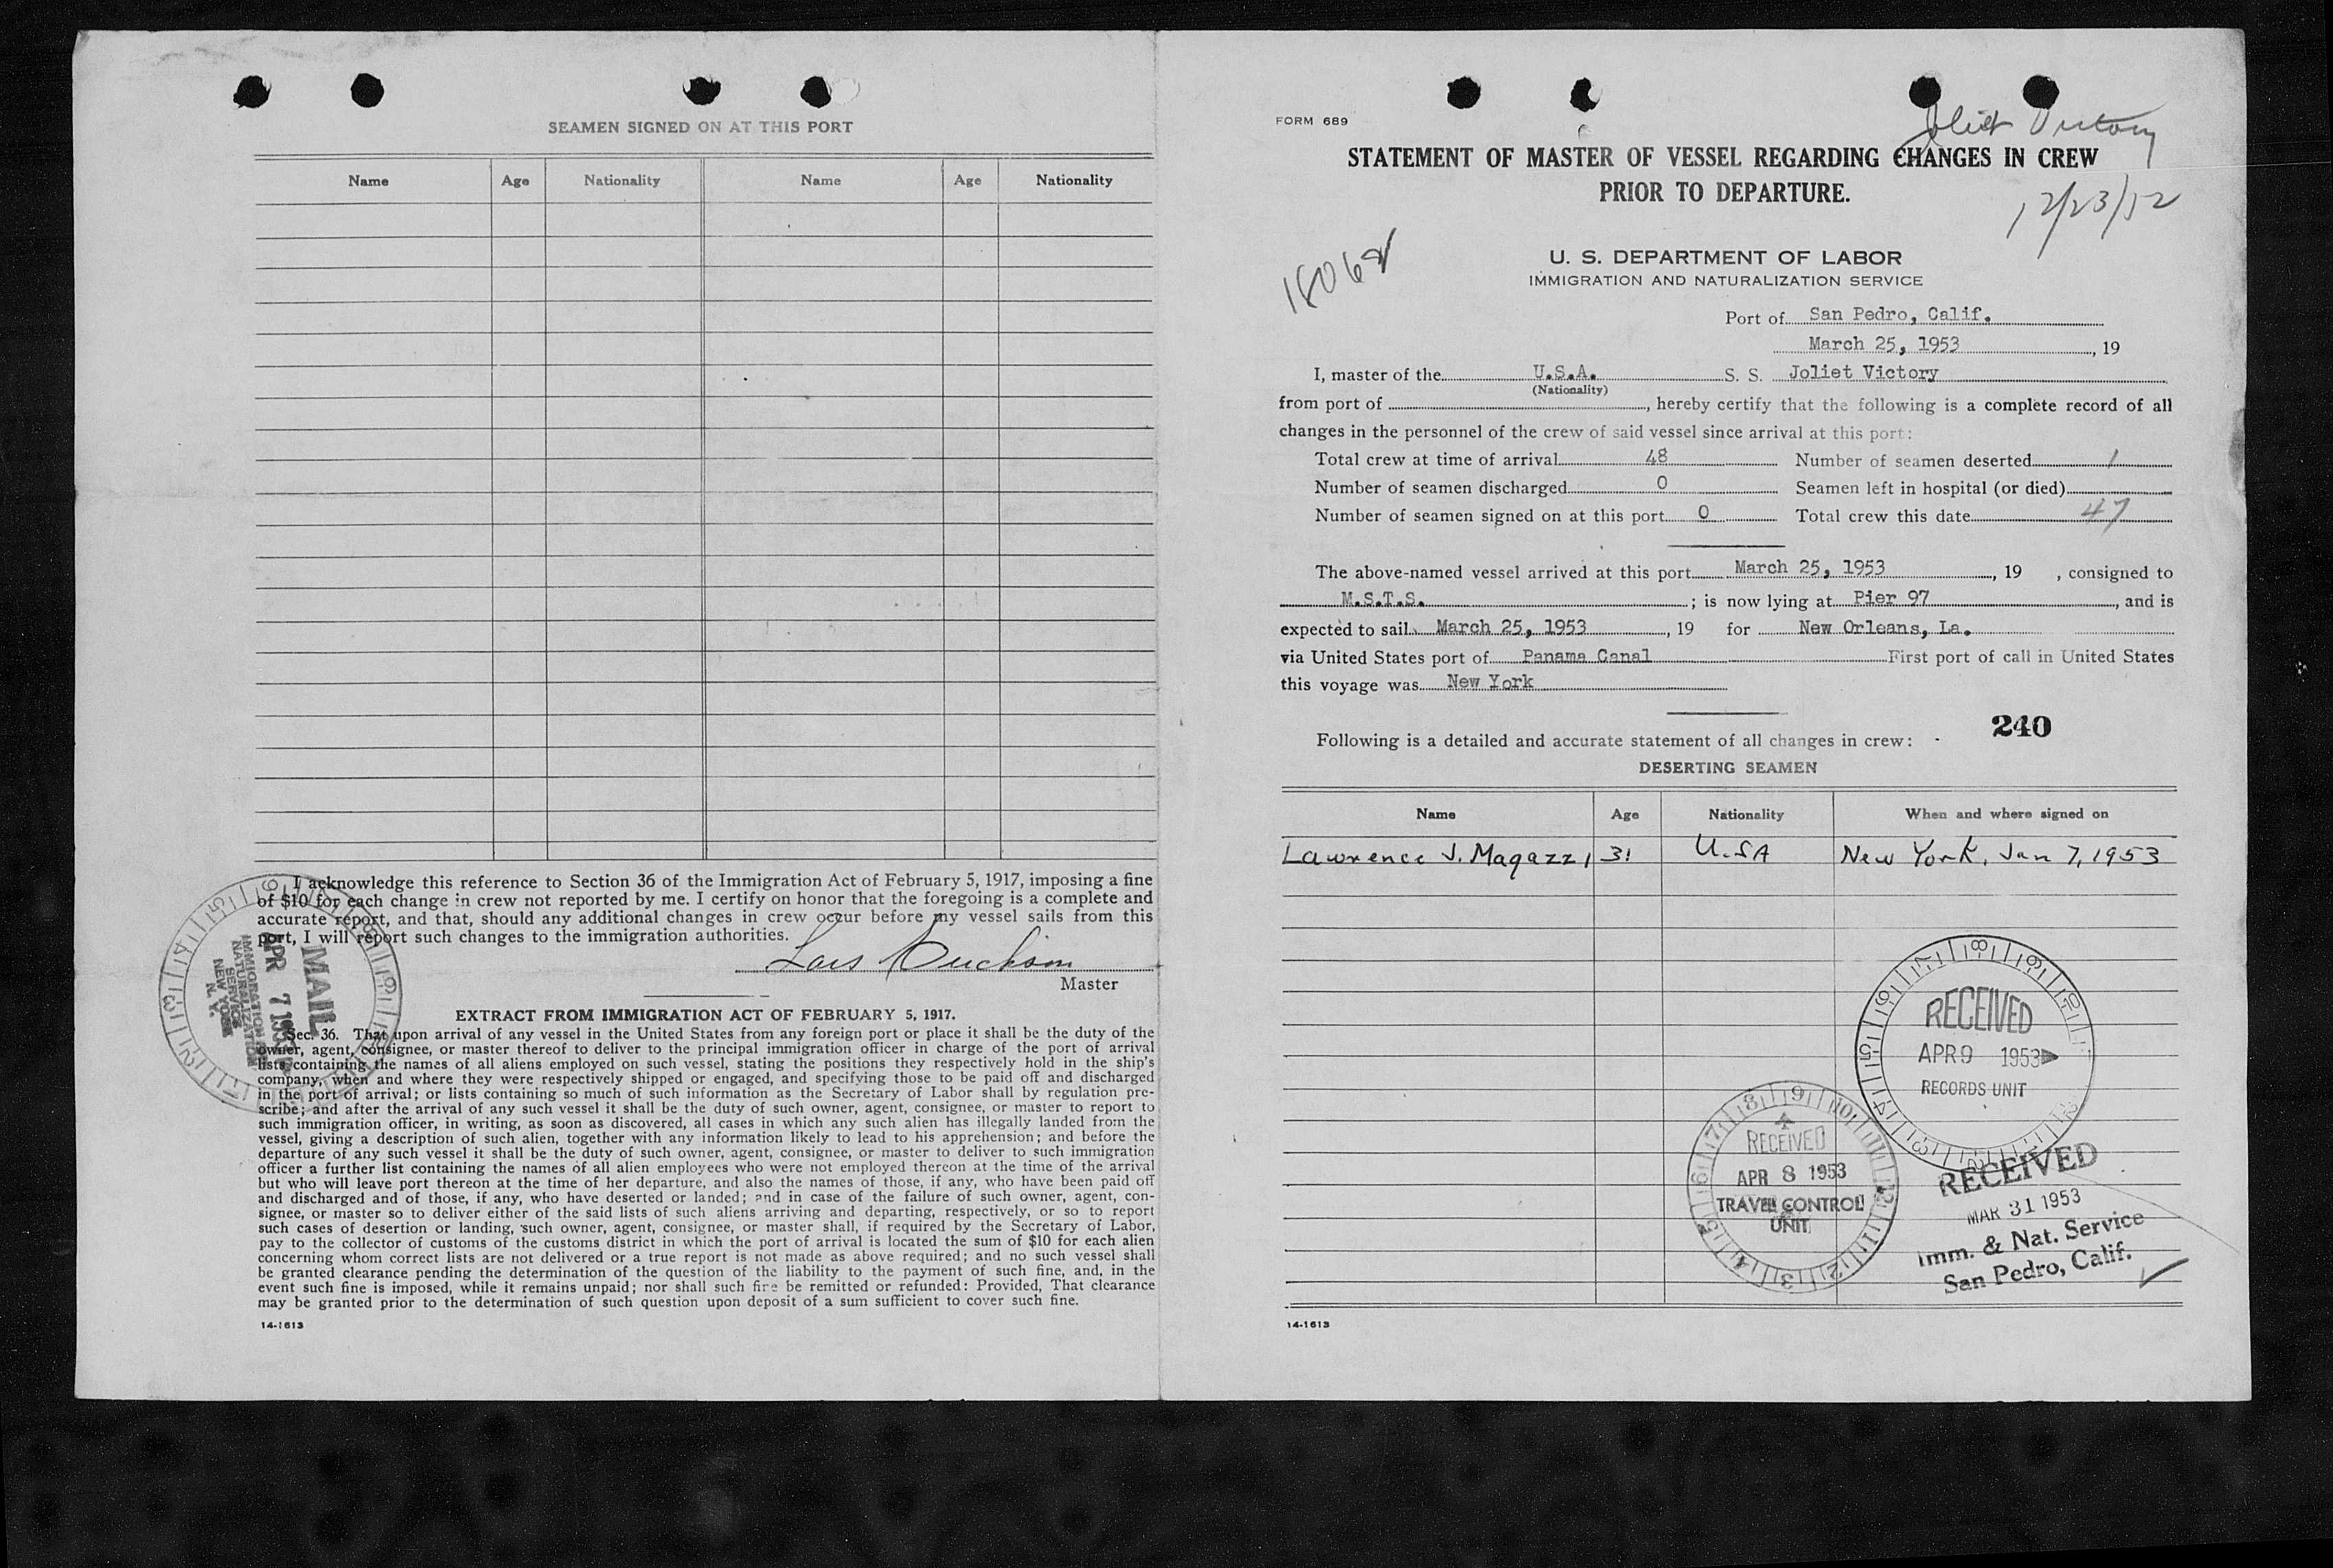 SEAMEN SIGNED ON AT THIS PORT
Name Age Nationality Name Age Nationality
I acknowledge this reference to Section 36 of the Immigration Act of February 5, 1917, imposing a fine
of $10 for each change in crew not reported by me. I certify on honor that the foregoing is a complete and
accurate report, and that, should any additional changes in crew occur before my vessel sails from this
port, I will report such changes to the immigration authorities.
Master
MAIL
APR 7 1953
IMMIGRATION
NATURALIZATION
SERVICE
NEW YORK
N. Y.
EXTRACT FROM IMMIGRATION ACT OF FEBRUARY 5, 1917.
Sec. 36. That upon arrival of any vessel in the United States from any foreign port or place it shall be the duty of the
owner, agent, consignee, or master thereof to deliver to the principal immigration officer in charge of the port of arrival
lists containing the names of all aliens employed on such vessel, stating the positions they respectively hold in the ship's
company, when and where they were respectively shipped or engaged, and specifying those to be paid off and discharged
in the port of arrival; or lists containing so much of such information as the Secretary of Labor shall by regulation pre-
scribe; and after the arrival of any such vessel it shall be the duty of such owner, agent, consignee, or master to report to
such immigration officer, in writing, as soon as discovered, all cases in which any such alien has illegally landed from the
vessel, giving a description of such alien, together with any information likely to lead to his apprehension; and before the
departure of any such vessel it shall be the duty of such owner, agent, consignee, or master to deliver to such immigration
officer a further list containing the names of all alien employees who were not employed thereon at the time of the arrival
but who will leave port thereon at the time of her departure, and also the names of those, if any, who have been paid off
and discharged and of those, if any, who have deserted or landed; and in case of the failure of such owner, agent, con-
signee, or master so to deliver either of the said lists of such aliens arriving and departing, respectively, or so to report
such cases of desertion or landing, such owner, agent, consignee, or master shall, if required by the Secretary of Labor,
pay to the collector of customs of the customs district in which the port of arrival is located the sum of $10 for each alien
concerning whom correct lists are not delivered or a true report is not made as above required; and no such vessel shall
be granted clearance pending the determination of the question of the liability to the payment of such fine, and, in the
event such fine is imposed, while it remains unpaid; nor shall such fine be remitted or refunded: Provided, That clearance
may be granted prior to the determination of such question upon deposit of a sum sufficient to cover such fine.
14-1613
FORM 689
Joliet Victory
STATEMENT OF MASTER OF VESSEL REGARDING CHANGES IN CREW
PRIOR TO DEPARTURE.
12/23/52
18068
U. S. DEPARTMENT OF LABOR
IMMIGRATION AND NATURALIZATION SERVICE
Port of San Pedro, Calif.
March 25, 1953, 19
I, master of the U.S.A. S. S. Joliet Victory
(Nationality)
from port of , hereby certify that the following is a complete record of all
changes in the personnel of the crew of said vessel since arrival at this port:
Total crew at time of arrival 48 Number of seamen deserted 1
Number of seamen discharged 0 Seamen left in hospital (or died)
Number of seamen signed on at this port 0 Total crew this date 47
The above-named vessel arrived at this port March 25, 1953, 19 , consigned to
M.S.T.S. ; is now lying at Pier 97, and is
expected to sail March 25, 1953, 19 for New Orleans, La.
via United States port of Panama Canal First port of call in United States
this voyage was New York
240
Following is a detailed and accurate statement of all changes in crew:
DESERTING SEAMEN
Name Age Nationality When and where signed on
Lawrence J. Magazzi 31 U.SA New York, Jan 7, 1953
RECEIVED
APR 9 1953
RECORDS UNIT
RECEIVED
APR 8 1953
TRAVEL CONTROL
UNIT
RECEIVED
MAR 31 1953
Imm. & Nat. Service
San Pedro, Calif.
14-1613